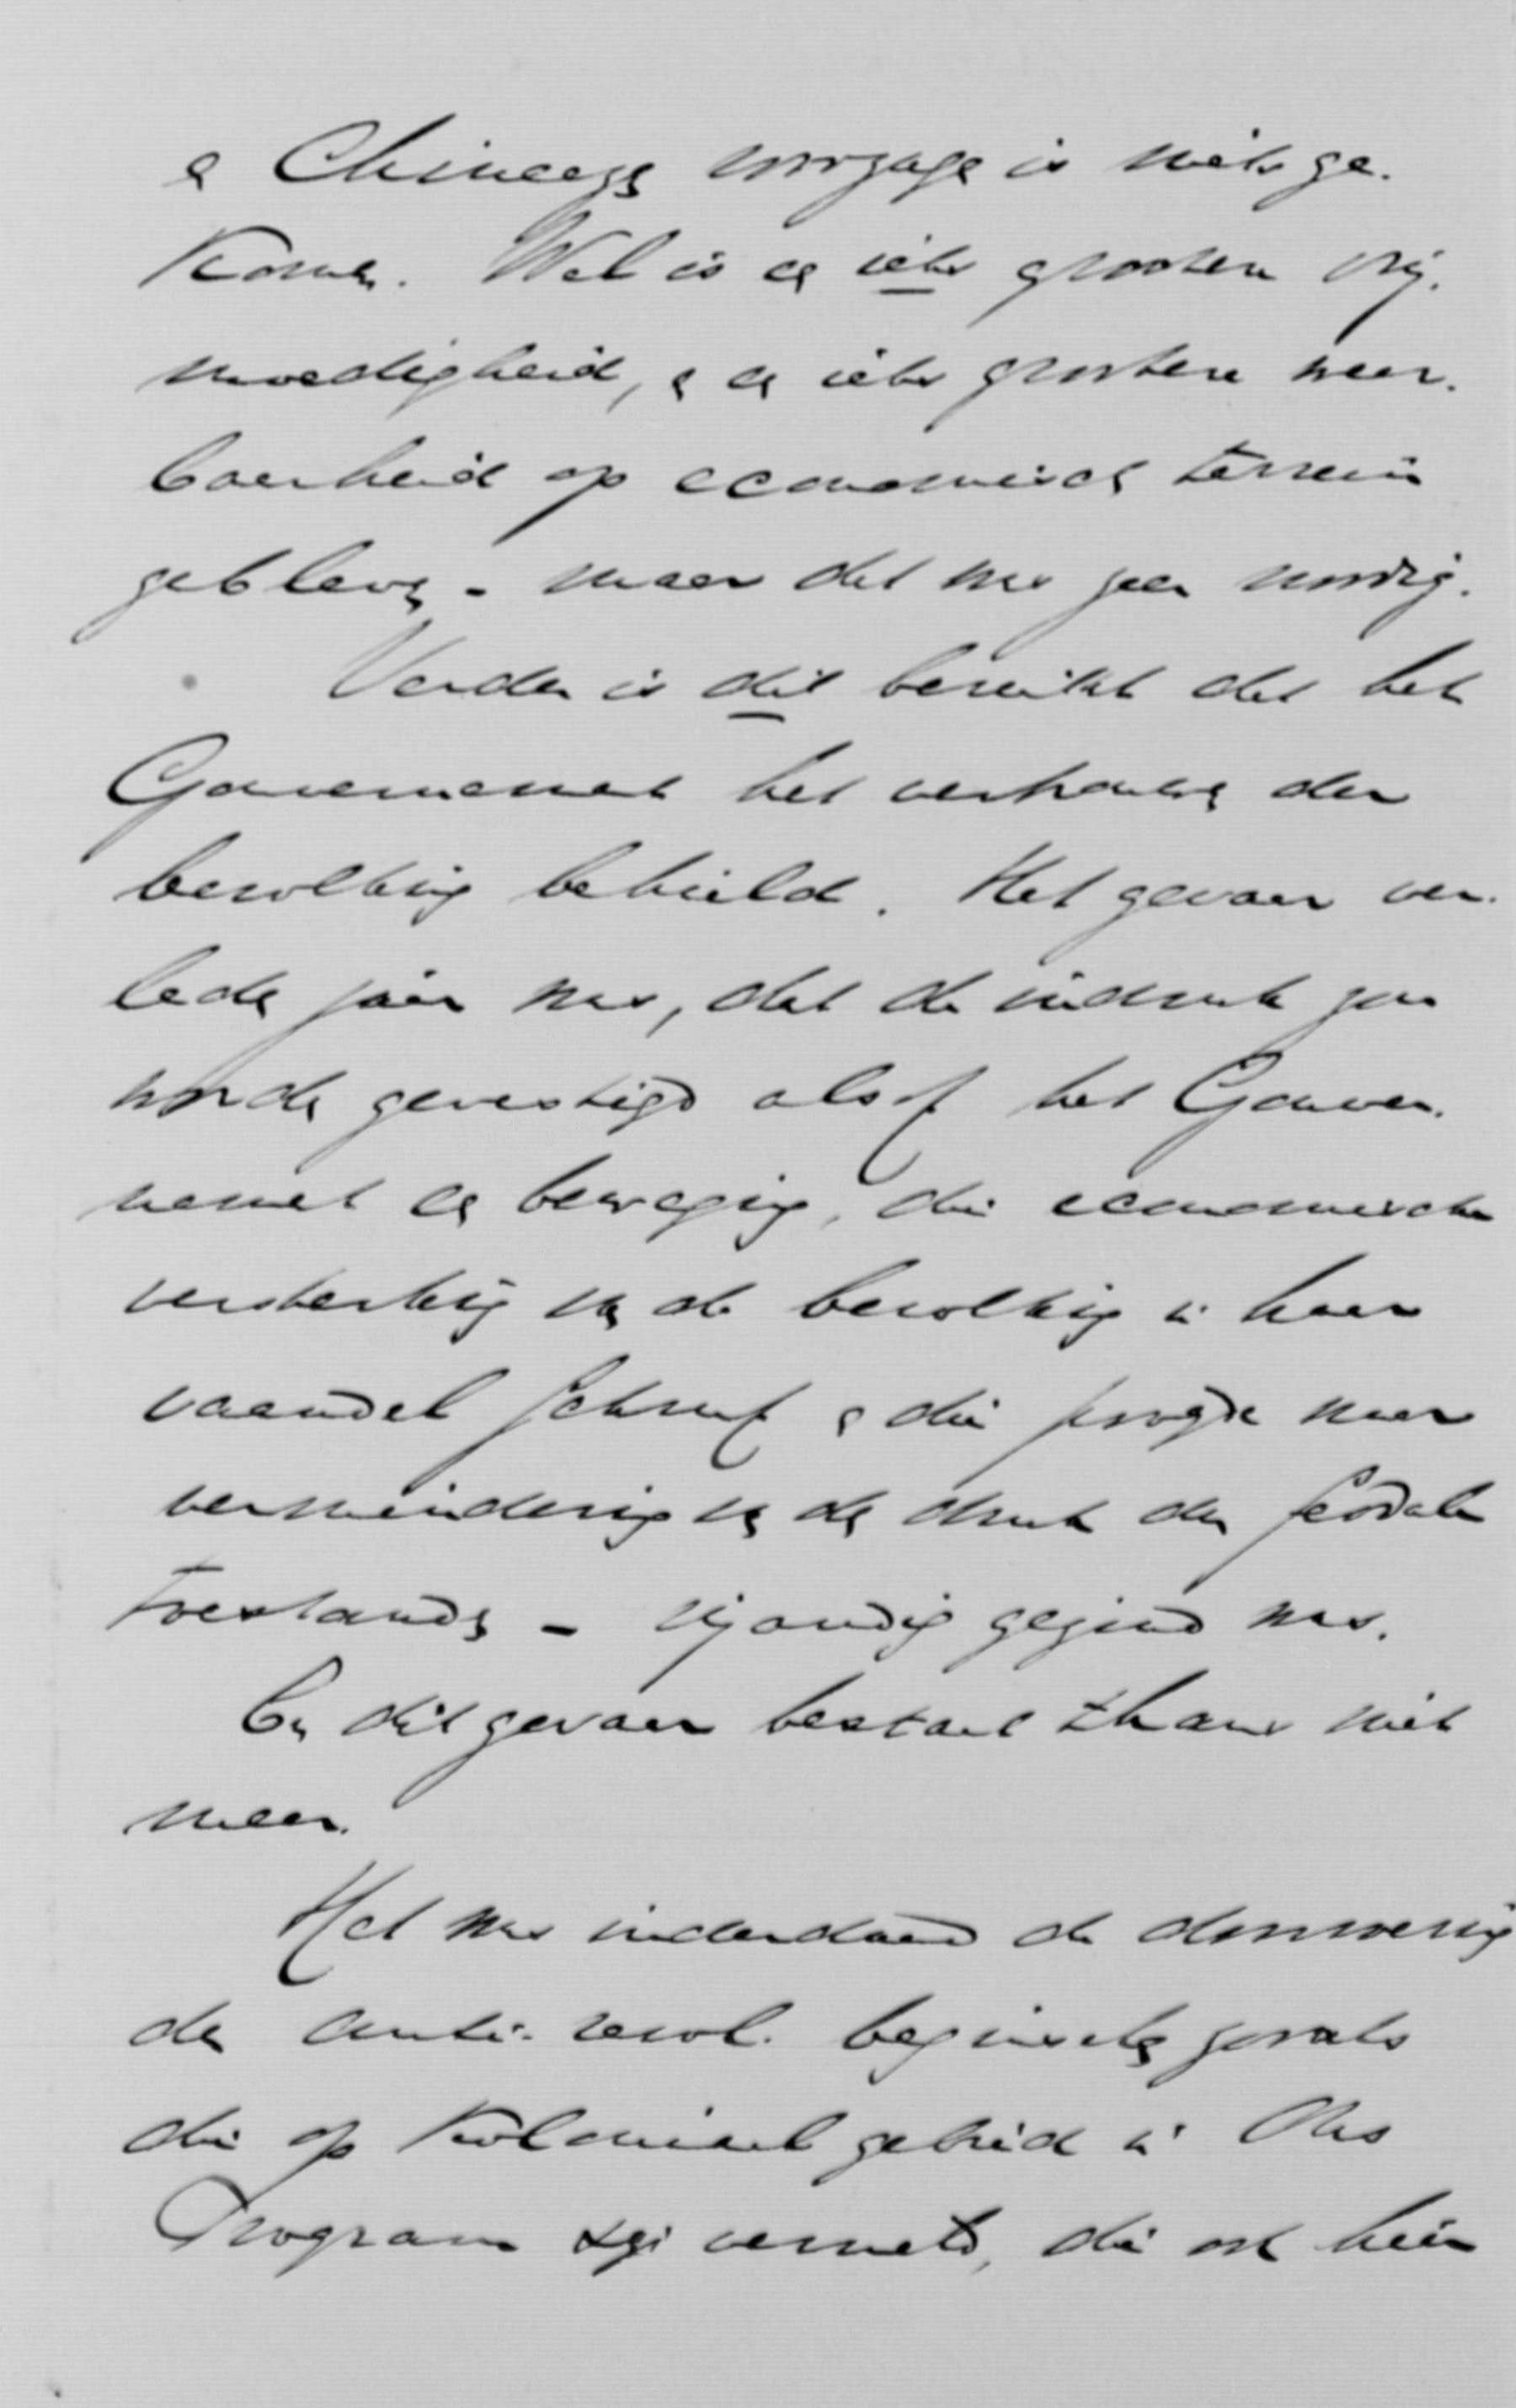 en Chineezen voorzage is niets ge-
komen. Wel is er iets grootere vrij-
moedigheid, en er iets grootere weer-
baarheid op economisch terrein
gebleven - maar dat was zeer noodig.
Verder is dit bereikt dat het
Gouvernement het vertrouwen der
bevolking behield. Het gevaar ver-
leden jaar was, dat de indruk zou
worden gevestigd alsof het Gouver-
nement en beweging, die economische
versterking van de bevolking in haar
vaandel schreef en die poogde naar
vermindering van den druk der feodale
toestanden - vijandig gezind was.
En dit gevaar bestaat thans niet
meer.
Het was inderdaad de doorwerking
der anti-revol. beginselen zooals
die op Koloniaal gebied in Ons
Program zijn vermeld, die ook hier